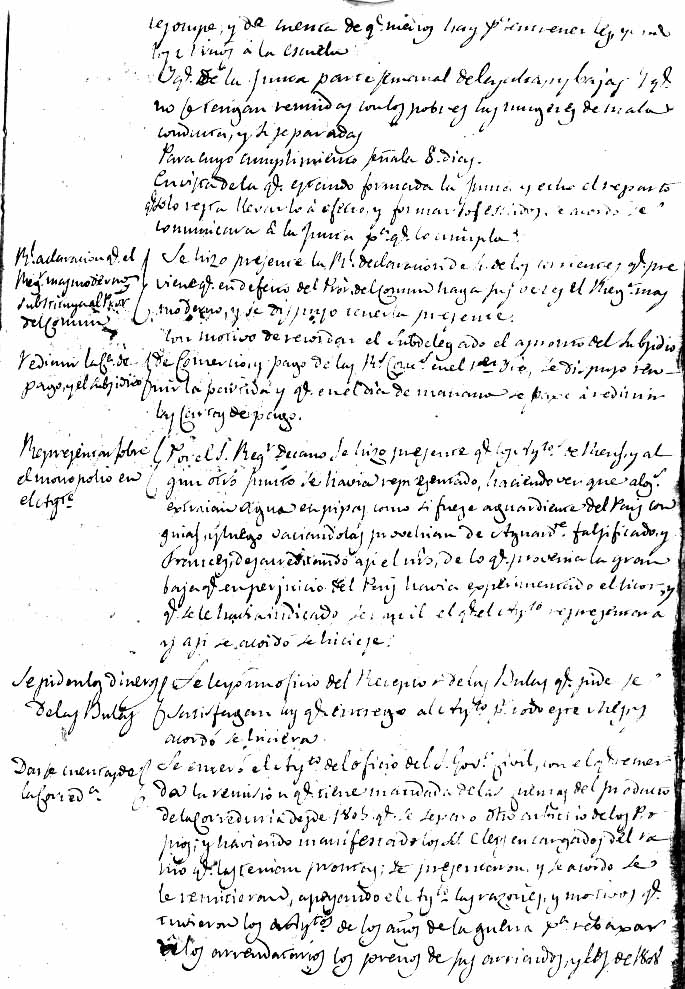 se ocupe, y dé cuenta de qᵉ medios hay pᵃ entrener
los niños á la escuela
Y qᵉ dé la Junta parte semanal de las altas, y bajas Y qᵉ
no se tengan reunidas con los pobres las mugeres de mala
conducta, y si separadas
Para cuyo cumplimiento señala 8. dias.
En vista de lo qᵉ estando formada la Junta y echo el reparto
solo resta llevarlo á efecto, y formar los estados, se acordó se
comunicara á la Junta pᵃ qᵉ lo cumpla.
Rˡ aclaracion qᵉ el
Regʳ mas moderno
substituya al Proʳ
del Comun
Se hizo presente la Rˡ declaracion de de los corrientes qᵉ pre
viene qᵉ en defecto del Proʳ del Comun haga sus veces el Regʳ mas
moderno, y se dispuso tenerla presente.
Redimir las Cᵗᵃˢ de
pago, y el subsidio
Con motivo de recordar el Subdelegado el apronto del Subsidio
de Comercio, y pago de las Rˢ Conᵉˢ en el 1ᵉʳ 3io, se dispuso reu
nir la partida y qᵉ en el dia de mañana se pase á redimir
las Cartas de pago.
Representar sobre
el monopolio en
el Agᵗᵉ
Por el S. Regʳ Decano se hizo presente qᵉ los Aytoˢ de Reus, y al
gun otro punto se havia representado, haciendo ver que algˢ
extraian Agua en pipas como si fuese aguardiente del Pais con
guias, y luego vaciandolas provehian de Aguardᵗᵉ falsificado, y
Frances, desacreditando asi el nrô, de lo qᵉ provenia la gran
baja qᵉ en perjuicio del Pais havia experimentado el licor, y
qᵉ se le havia indicado ser util el qᵉ el Aytᵒ representara
y asi se acordó se hiciese.
Se piden los dineros
de las Bulas
Se leyó un oficio del Receptor de las Bulas qᵉ pide se
satisfagan las qᵉ entregó al Aytᵒ pʳ todo este Mes, y
acordó se hiciera.
Darse cuentas de
la Corredᵃ
Se enteró el Aytᵒ del oficio del S. Govʳ Civil, con el qᵉ recuer
da la remision qᵉ tiene mandada de las cuentas del producto
de la Correduria desde 1805 qᵉ se separó otro arbitrio de los Pro
pios; y haviendo manifestado los SS. Cleg encargados del ra
mo qᵉ las tenian prontas; se presentaron, y se acordó se
le remitieran, apoyando el Aytᵒ las razones, y motivos qᵉ
tuvieron los Aytoˢ de los años de la guerra pᵃ rebaxar
á los arrendatarios los precios de sus arriendos, y los de 1808